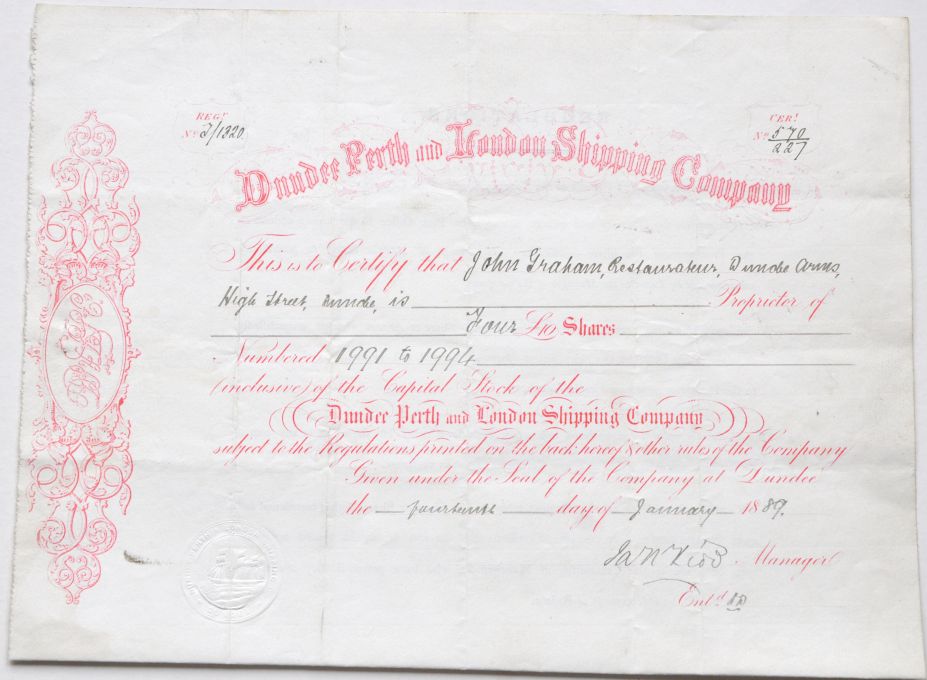 REGR
No J/1320
CERT
No 570
227
Dundee Perth and London Shipping Company
This is to Certify that John Graham, Restaurateur, Dundee Arms,
High Street, Dundee, is Proprietor of
Four £10 Shares
Numbered 1991 to 1994
(inclusive) of the Capital Stock of the
Dundee Perth and London Shipping Company
subject to the Regulations printed on the back hereof & other rules of the Company
Given under the Seal of the Company at Dundee
the fourteenth day of January 1889.
Manager
Entd